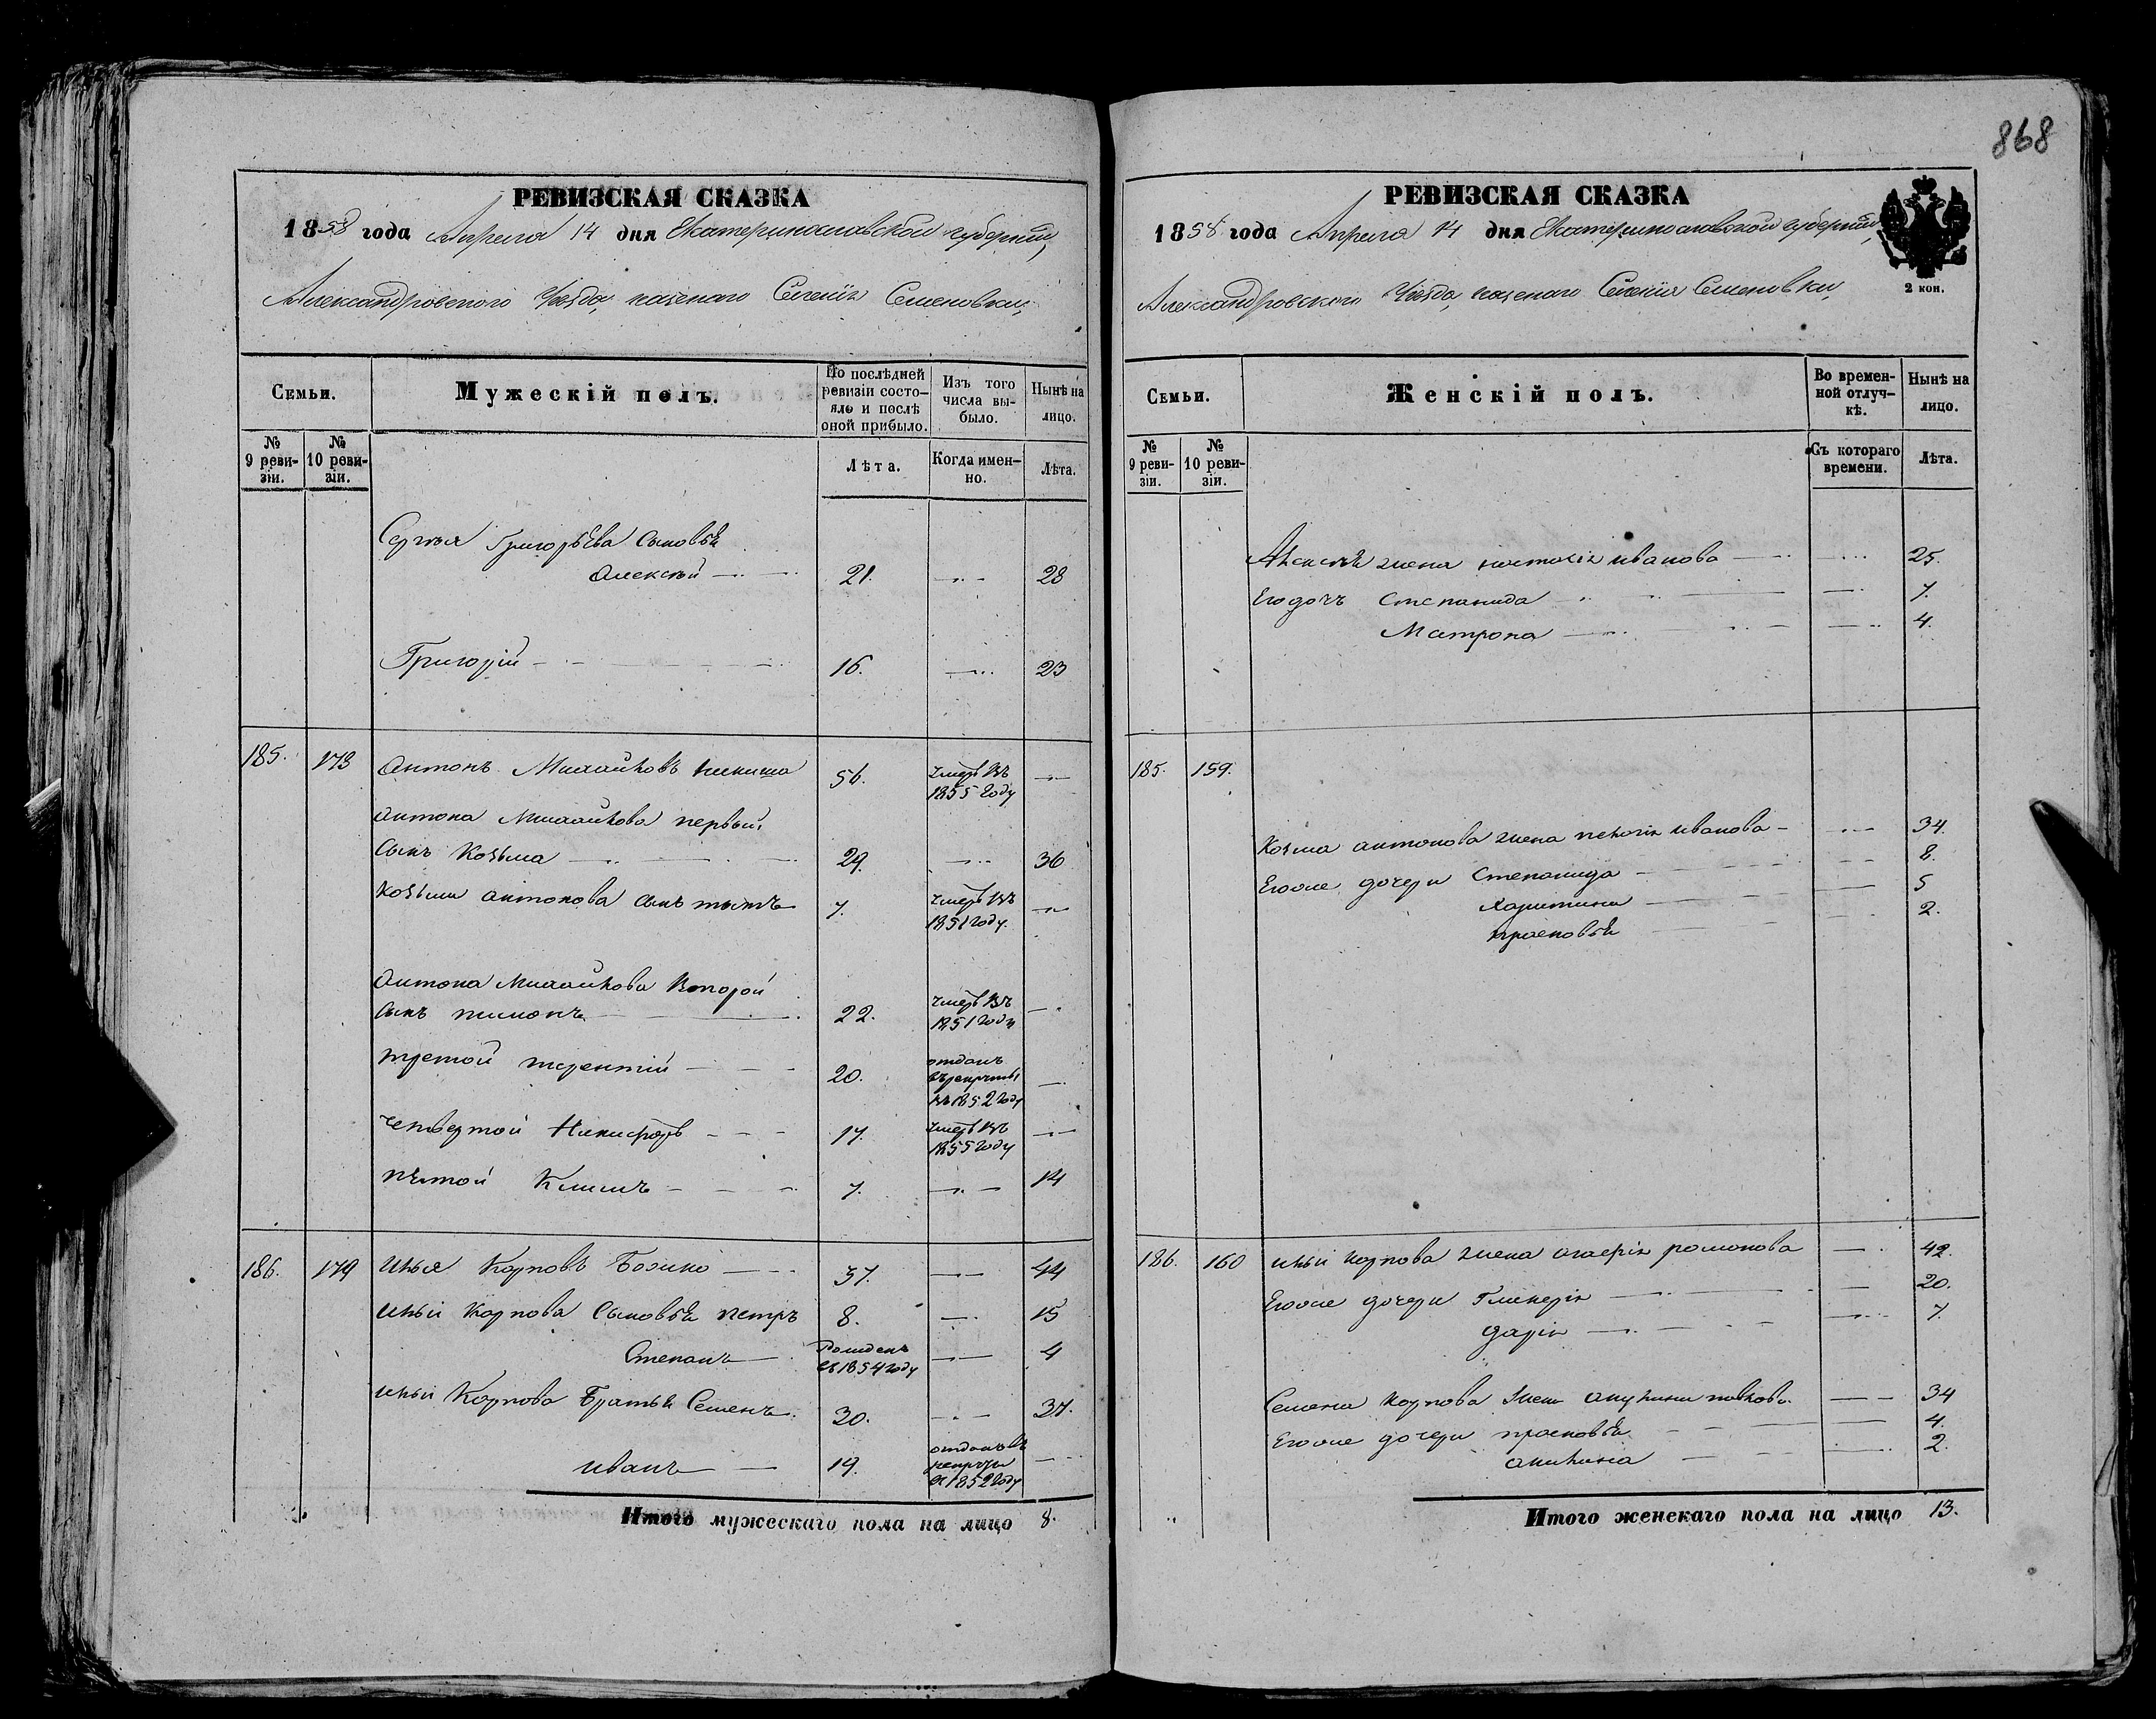 868
РЕВИЗСКАЯ СКАЗКА
1858 года Апреля 14 дня Екатеринославской губернии,
Александровского Уезда, казенаго Селенія Семеновки,
Семьи.
Мужескій полъ.
По послѣдней ревизіи состояло и послѣ оной прибыло.
Изъ того числа выбыло.
Нынѣ на лицо.
№ 9 ревизіи.
№ 10 ревизіи.
Лѣта.
Когда именно.
Лѣта.
Сергѣя Григорьева Сыновья
Алексѣй 21. 28
Григорій 16. 23
185. 173 Антонъ Михайловъ 56. умеръ въ 1855 году
Антона Михайлова первый
Сынъ Козьма 29. 36
Козьмы Антонова сынъ 7. умеръ въ 1851 году.
Антона Михайлова Второй
Сынъ 22. умеръ въ 1851 году
третой терентій 20. отданъ въ рекруты въ 1852 году
четвертой Никифоръ 17. умеръ въ 1855 году
пятой Климъ 7. 14
186. 179 Илья Карповъ Божко 37. 44
Ильи Карпова Сыновья петръ 8. 15
Степанъ Рожденъ въ 1854 году 4
Ильи Карпова Братья Семенъ. 30. 37.
иванъ 19. отданъ въ рекруты въ 1852 году
Итого мужескаго пола на лицо 8.
РЕВИЗСКАЯ СКАЗКА
1858 года Апреля 14 дня Екатеринославской губерніи,
Александровского Уезда, казенаго Селенія Семеновки,
2 коп.
Семьи.
Женскій полъ.
Во временной отлучкѣ.
Нынѣ на лицо.
№ 9 ревизіи.
№ 10 ревизіи.
Съ котораго времени.
Лѣта.
Алексѣя жена иванова 25.
Его дочь Степанида 7.
Матрона 4.
185. 159.
Козма антонова жена иванова 34.
Еговые дочери Степанида 8.
Харитина 5
прасковья 2.
186. 160 ильи карпова жена романова 42.
Еговые дочери Гликерія 20.
дарія 7.
Семена карпова жена 34
Еговые дочери прасковья 4.
акилина 2.
Итого женскаго пола на лицо 13.